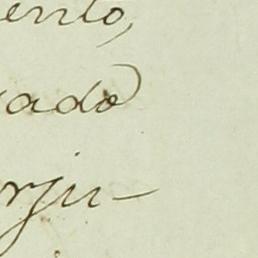 ento,
ado
rju-